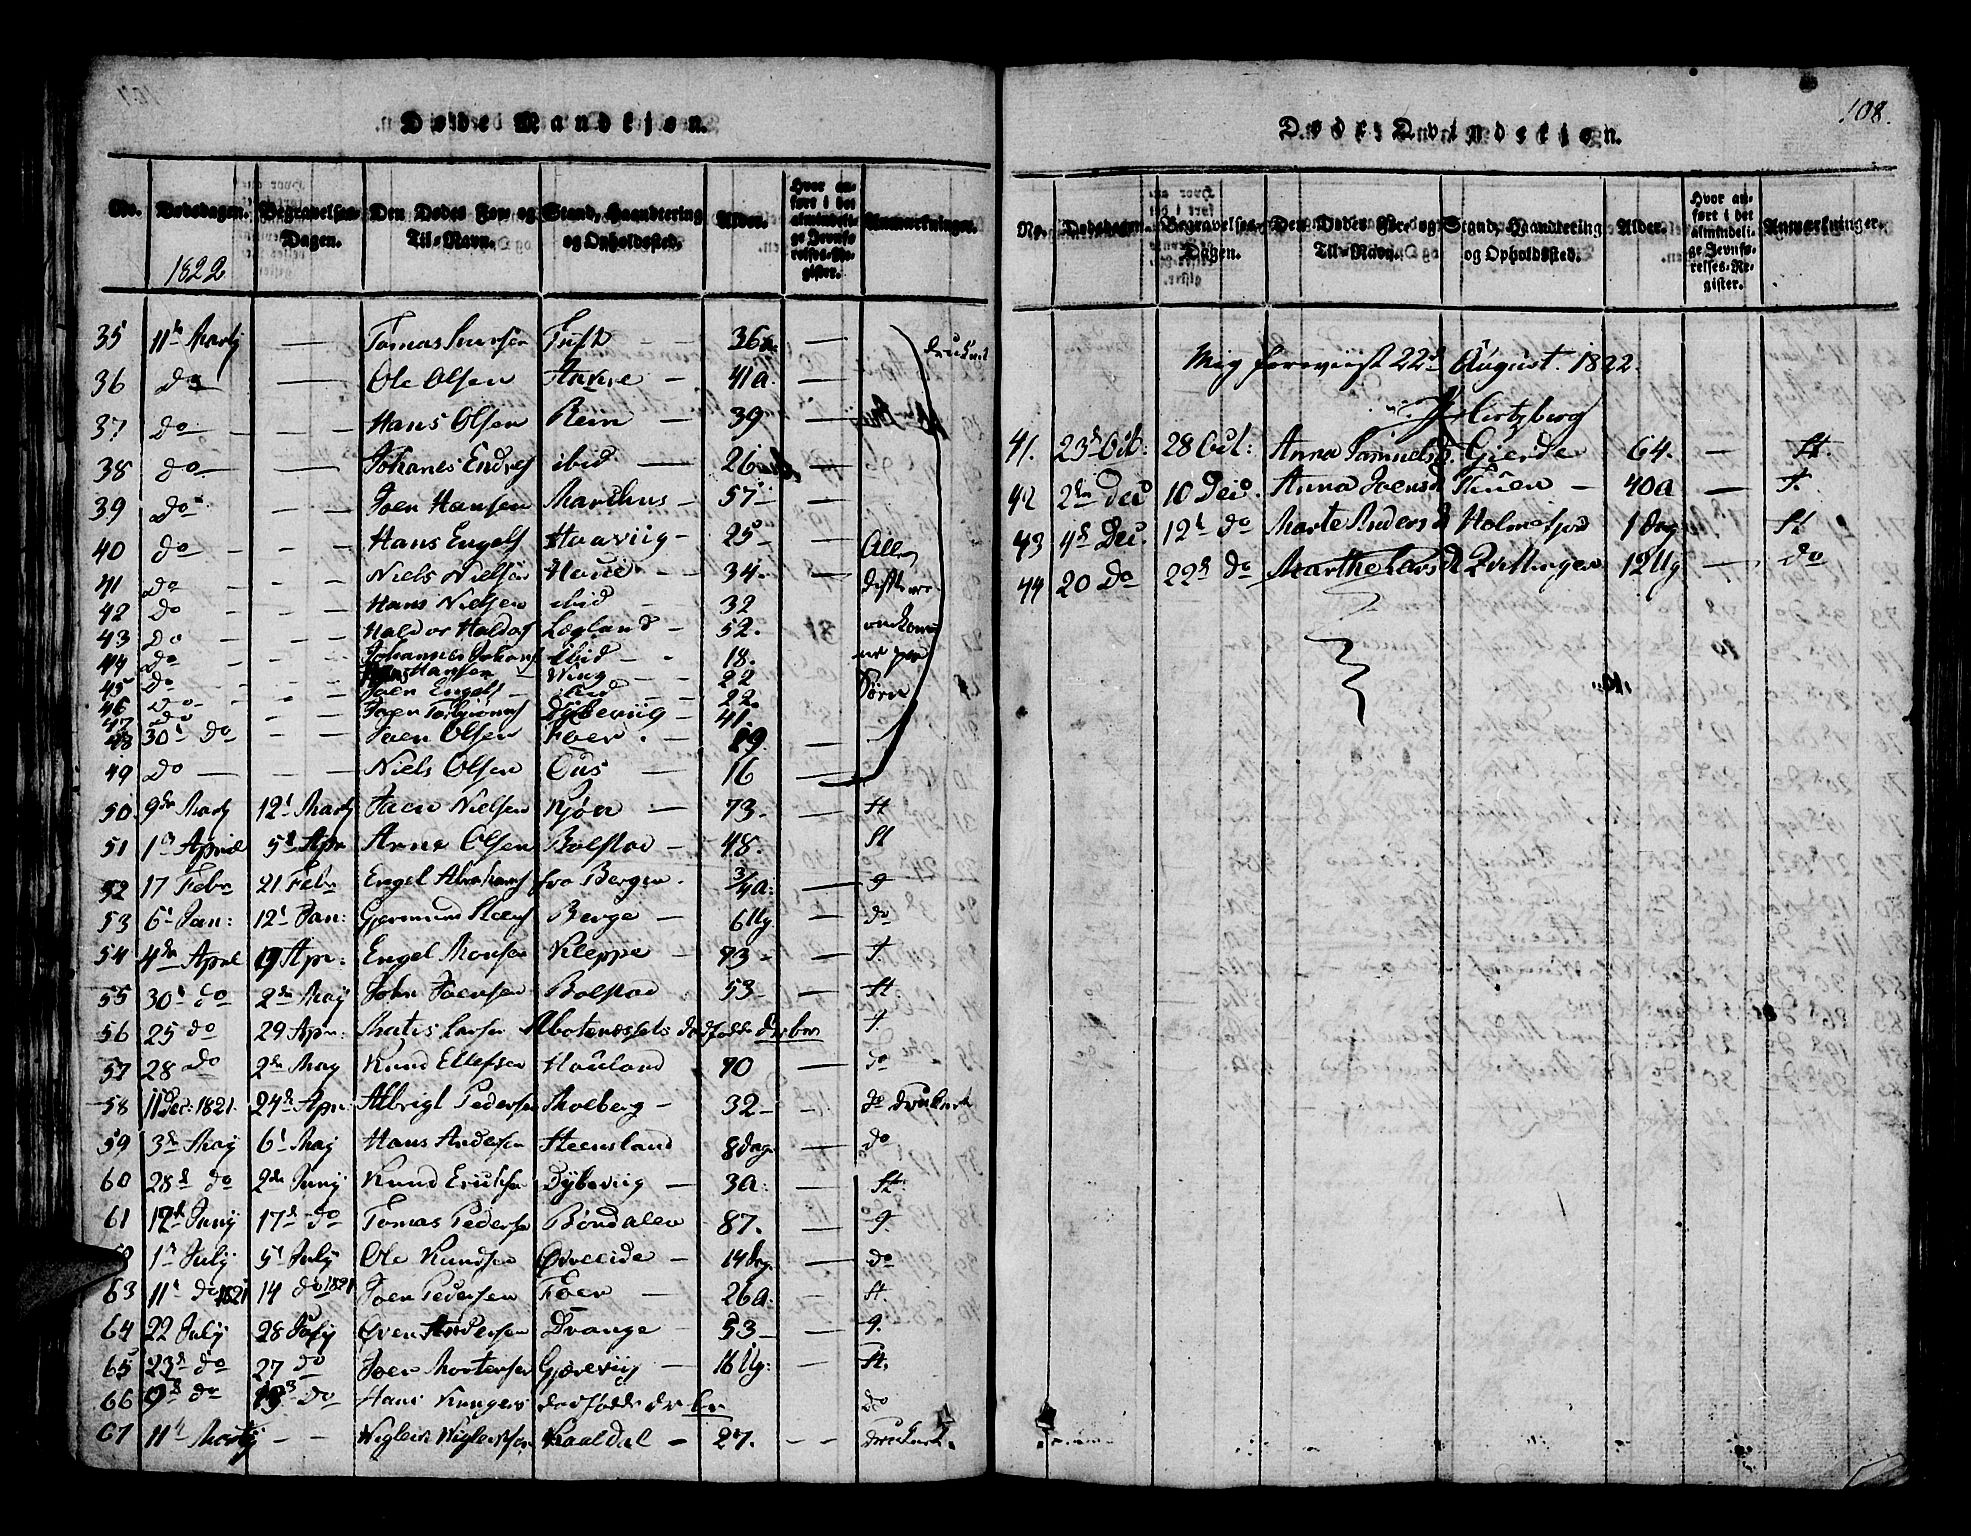 Døde Mandkjøn.
No. Dødsdagen. Begravelses-Dagen. Den Dødes For- og Til-Navn. Stand, Haandtering og Opholdssted. Alder. Hvor anført i det almindelige Jevnførelses-Register. Anmærkninger.
1822
35 11te Martj — Tomas — 36 a. — druknet
36 do — Ole Olsen — 41 a. —
37 do — — Hans Olsen Rein — 39 —
38 do — Johanes Endres ibid — 26 —
39 do — — Joen Hansen — 57 —
40 do — — Hans Engels Haaviig — 25 — Alle
41 do — — Niels Nielsen Houe — 34 —
42 do — — Hans Nielsen ibid — 32
43 do — — Haldor Haldors Lægland — 52. omkom
44 do — — Johannes Johans ibid — 18. ne paa
45 do — — Hans Hansen Wiig — 22
46 do — — Joen Engels ibid — 22. Søen
47 do — — Joen Torbiørns Dybeviig — 41.
48 30t do — — Joen Olsen Foer. — 19 —
49 do — — Niels Olsen Eus — 16 —
50 9de Martj 12t Martj Joen Nielsen Njøn — 73. — St
51 1te April 5t Apr Arne Olsen Bolstad — 48. — St
52 17 Febr 21 Febr Engel Abrahams fra Bergen. 3/4 a: — g
53 6t Jan: 12t Jan: Gjermund Berge — 6 Ug — do
54 4de April 9 Apr: Engel Monsen Kleppe — 93 — — f
55 30t do 2den Maj John Joensen Bolstad — 53 — — St.
56 25 do 29 Apr: Matis Larsen dødfødt drbn f
57 28 do 2den Maj Knud Ellefsen Houland 90 — do
58 11 Dec: 1821. 24de Apr: Albrigt Pedersen Moeberg — 32 — — do druknet
59 3de Maj 6t Maj Hans Andersen Steensland 8 dag — do
60 28de do 2den Junj Knud Eriksen Dybeviig — 3 a: — St.
61 12t Junj 17de do Tomas Pedersen Bøndalen 87. — g.
62 1te Julj 5t Julj Ole Knudsen Øvreeide — 14 dag. — do
63 11t do 1821 14 do 1821 Joen Pedersen Foer — 26 a. — St.
64 22 Julj 28 Julj Øven Andersen Drange — 53 — — g.
65 23de do 27 do Joen Mortensen Gjæreviig — 16 Ug. — St.
66 9de do 13de do Hans dødfødt dr bn do
67 11te Martj — — Wiglek Wigleksen Kaaldal — 27. — — druknet.
108.
Døde Qvindekjøn.
No. Dødsdagen. Begravelses-Dagen. Den Dødes For- og Til-Navn. Stand, Haandtering og Opholdssted. Alder. Hvor anført i det almindelige Jevnførelses-Register. Anmærkninger.
Mig foreviist 22de August. 1822.
Hertzberg
41. 23de Oct: 28 Oct: Anna Samuelsd. Gierde 64. — St.
42 2den Dec 10 Dec. Anna Joensd Tuen — 40 a — f.
43 4de Dec. 12t do Marte Andersd Holmefjord 1 dag — St
44 20 do 22de do Marthe Larsd Qvittingen 12 Ug — do